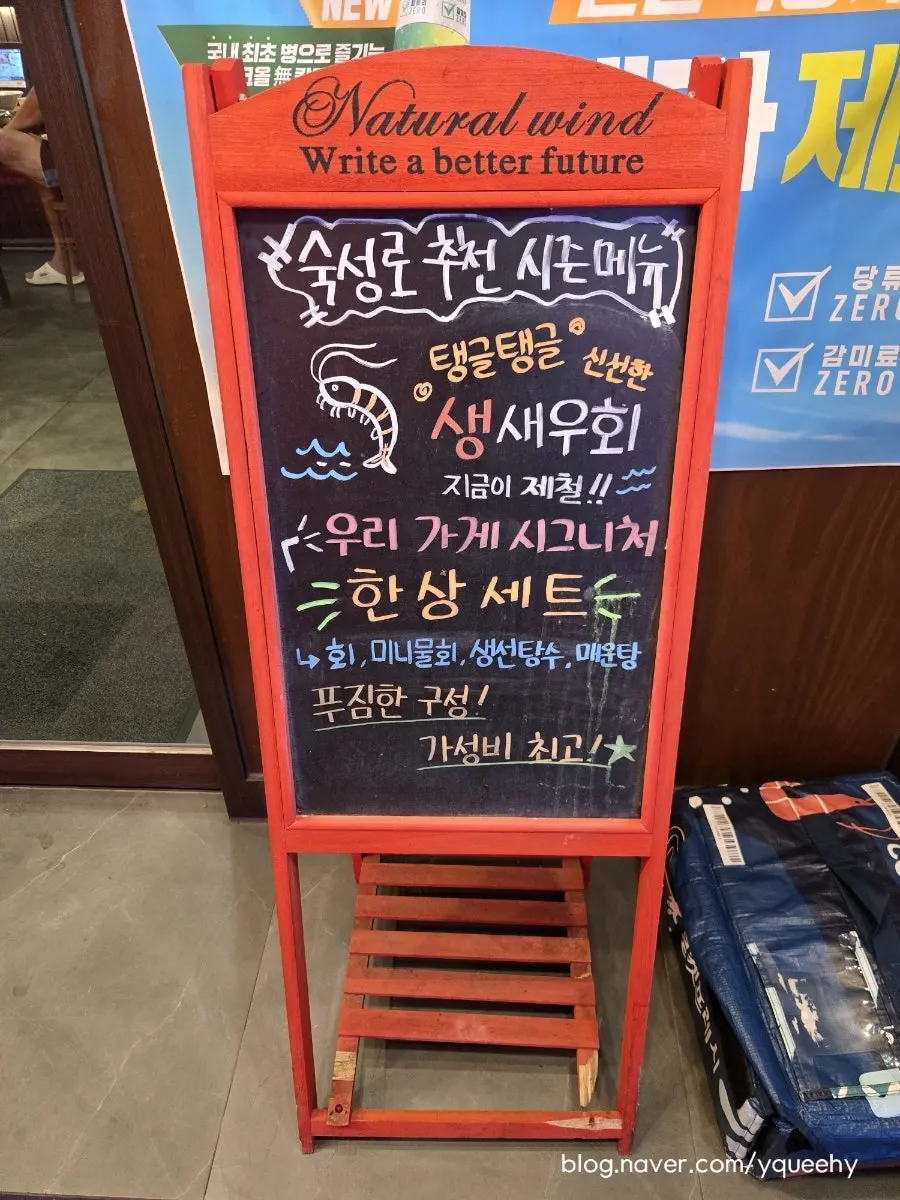 NEW
국내 최초 병으로 즐기는
ZERO
Natural wind
Write a better future
제
당류
ZERO
감미료
ZERO
숙성로 추천 시즌메뉴
탱글탱글 신선한
생새우회
지금이 제철!!
우리 가게 시그니처
한상세트
↳ 회, 미니물회, 생선탕수, 매운탕
푸짐한 구성!
가성비 최고!★
blog.naver.com/yqueehy